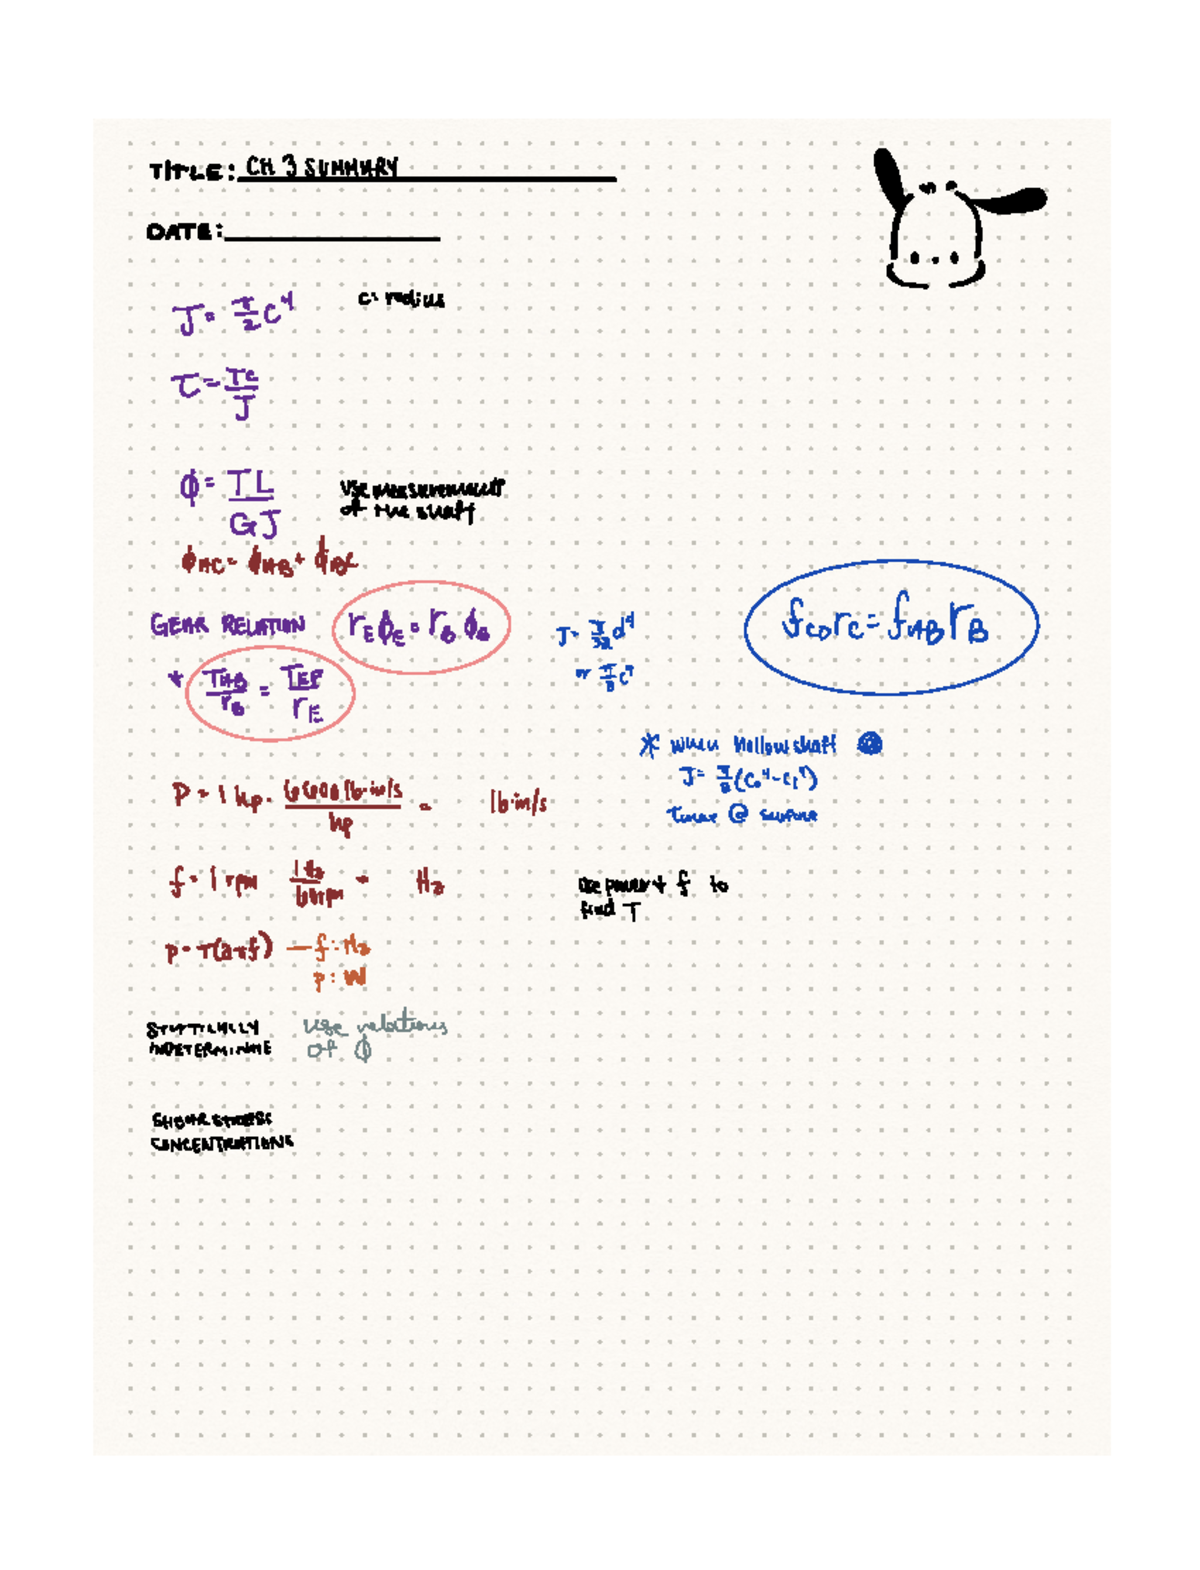 TITLE: CH 3 SUMMARY
DATE:
J = π/2 c⁴
c: radius
τ = Tc/J
φ = TL/GJ
use measurement
of the shaft
φAC = φAB + φBC
GEAR RELATION
rE φE = rB φB
* TAB/rB = TEF/rE
J = π/32 d⁴
or
fCD rC = fAB rB
* when hollow shaft
τmax @ surface
P = 1 hp · 6600 lb·in/s / hp = lb·in/s
f = 1 rpm 1 Hz/60 rpm = Hz
use power + f to
find T
P = T(2πf) — f: Hz
P: W
STATICALLY
INDETERMINATE
use relations
of φ
SHEAR STRESS
CONCENTRATIONS